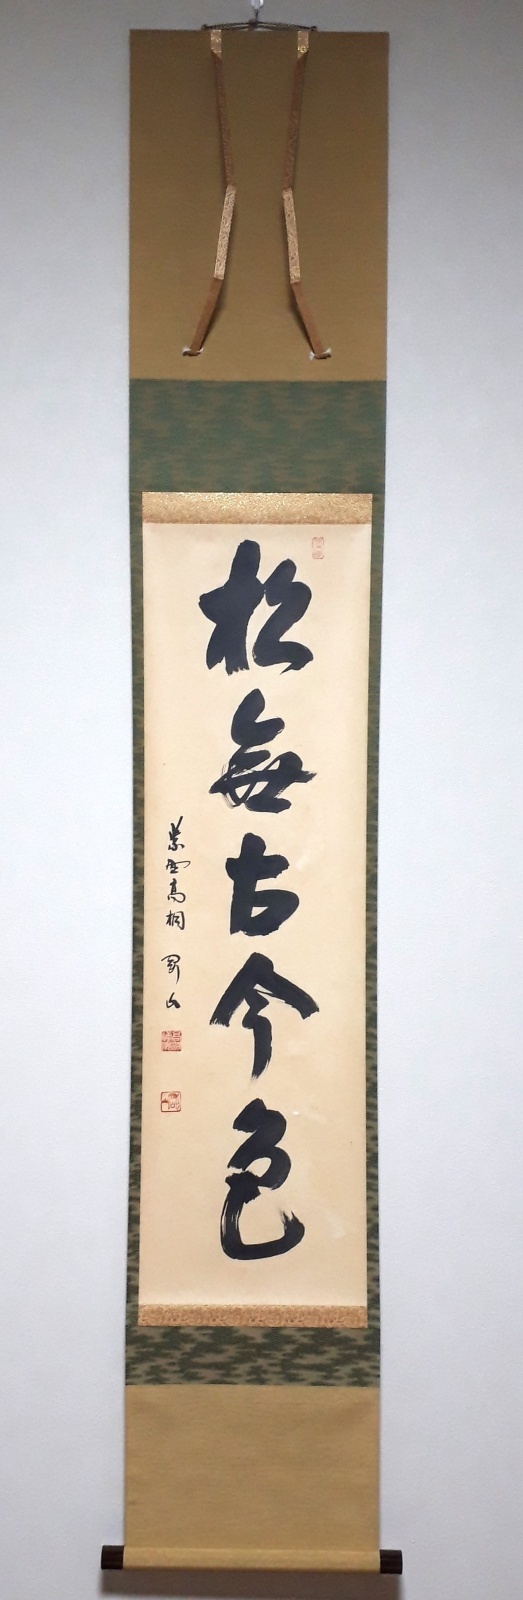 松無古今色
紫野高桐 罗山